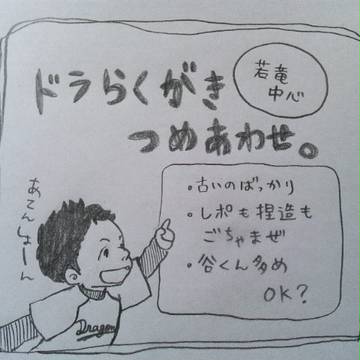 ドラらくがき
つめあわせ。
若竜
中心
あてんしょーん
・古いのばっかり
・レポも捏造も
ごちゃまぜ
・谷くん多め
OK?
Dragons